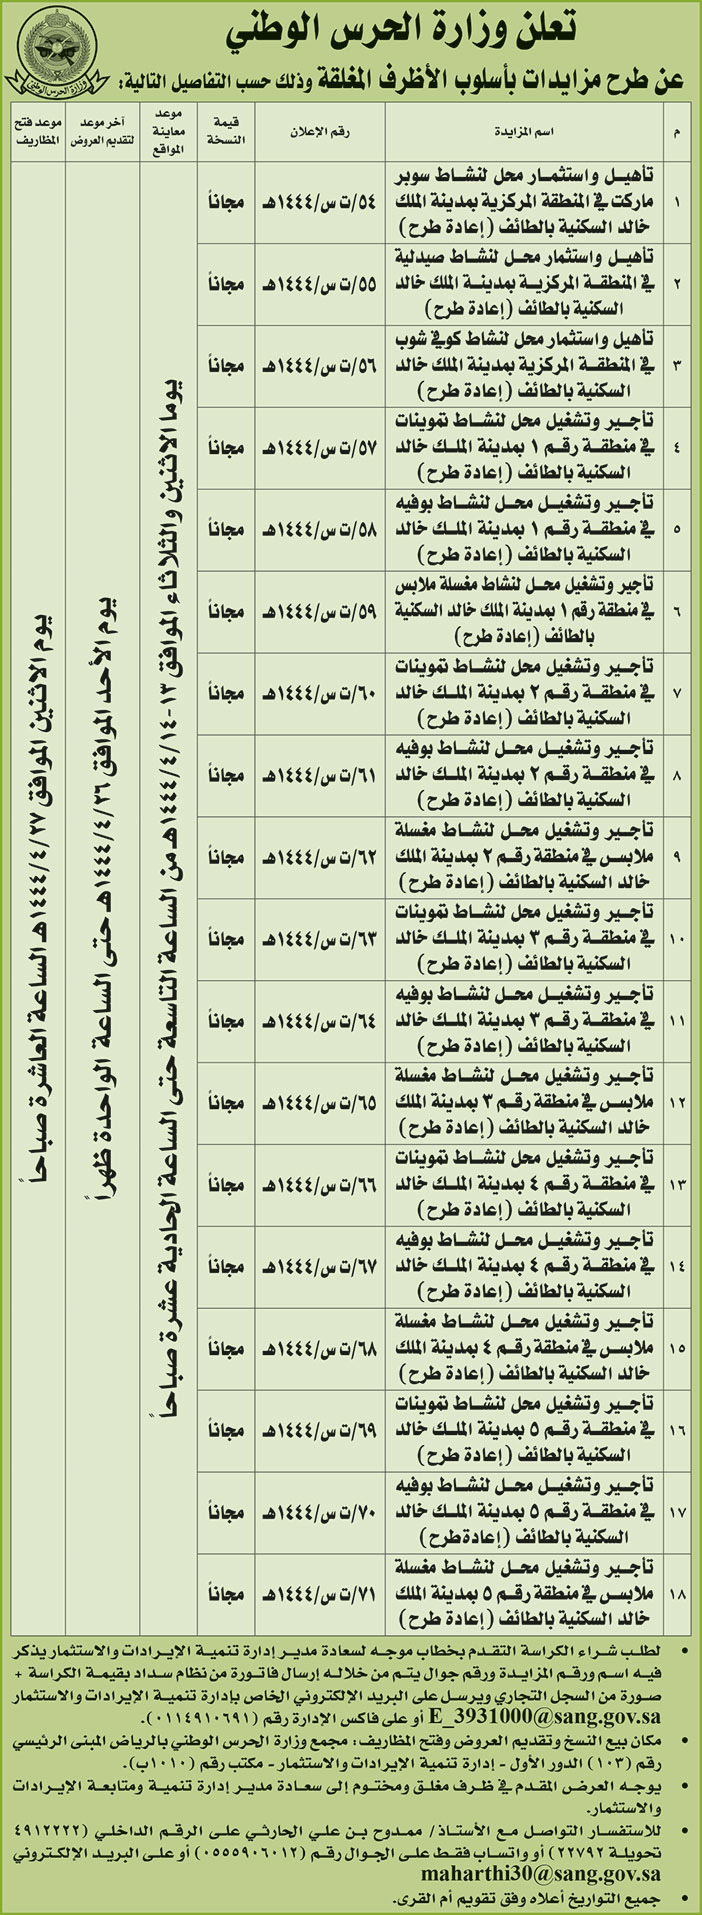 تعلن وزارة الحرس الوطني
عن طرح مزايدات بأسلوب الأظرف المغلقة وذلك حسب التفاصيل التالية:
وزارة الحرس الوطني
م
اسم المزايدة
رقم الإعلان
قيمة النسخة
موعد معاينة المواقع
آخر موعد لتقديم العروض
موعد فتح المظاريف
١
تأهيل واستثمار محل لنشاط سوبر
ماركت في المنطقة المركزية بمدينة الملك
خالد السكنية بالطائف (إعادة طرح)
٥٤/ت س/١٤٤٤هـ
مجاناً
٢
تأهيل واستثمار محل لنشاط صيدلية
في المنطقة المركزية بمدينة الملك خالد
السكنية بالطائف (إعادة طرح)
٥٥/ت س/١٤٤٤هـ
مجاناً
٣
تأهيل واستثمار محل لنشاط كوفي شوب
في المنطقة المركزية بمدينة الملك خالد
السكنية بالطائف (إعادة طرح)
٥٦/ت س/١٤٤٤هـ
مجاناً
٤
تأجير وتشغيل محل لنشاط تموينات
في منطقة رقم ١ بمدينة الملك خالد
السكنية بالطائف (إعادة طرح)
٥٧/ت س/١٤٤٤هـ
مجاناً
٥
تأجير وتشغيل محل لنشاط بوفيه
في منطقة رقم ١ بمدينة الملك خالد
السكنية بالطائف (إعادة طرح)
٥٨/ت س/١٤٤٤هـ
مجاناً
٦
تأجير وتشغيل محل لنشاط مغسلة ملابس
في منطقة رقم ١ بمدينة الملك خالد السكنية
بالطائف (إعادة طرح)
٥٩/ت س/١٤٤٤هـ
مجاناً
٧
تأجير وتشغيل محل لنشاط تموينات
في منطقة رقم ٢ بمدينة الملك خالد
السكنية بالطائف (إعادة طرح)
٦٠/ت س/١٤٤٤هـ
مجاناً
٨
تأجير وتشغيل محل لنشاط بوفيه
في منطقة رقم ٢ بمدينة الملك خالد
السكنية بالطائف (إعادة طرح)
٦١/ت س/١٤٤٤هـ
مجاناً
٩
تأجير وتشغيل محل لنشاط مغسلة
ملابس في منطقة رقم ٢ بمدينة الملك
خالد السكنية بالطائف (إعادة طرح)
٦٢/ت س/١٤٤٤هـ
مجاناً
١٠
تأجير وتشغيل محل لنشاط تموينات
في منطقة رقم ٣ بمدينة الملك خالد
السكنية بالطائف (إعادة طرح)
٦٣/ت س/١٤٤٤هـ
مجاناً
١١
تأجير وتشغيل محل لنشاط بوفيه
في منطقة رقم ٣ بمدينة الملك خالد
السكنية بالطائف (إعادة طرح)
٦٤/ت س/١٤٤٤هـ
مجاناً
١٢
تأجير وتشغيل محل لنشاط مغسلة
ملابس في منطقة رقم ٣ بمدينة الملك
خالد السكنية بالطائف (إعادة طرح)
٦٥/ت س/١٤٤٤هـ
مجاناً
١٣
تأجير وتشغيل محل لنشاط تموينات
في منطقة رقم ٤ بمدينة الملك خالد
السكنية بالطائف (إعادة طرح)
٦٦/ت س/١٤٤٤هـ
مجاناً
١٤
تأجير وتشغيل محل لنشاط بوفيه
في منطقة رقم ٤ بمدينة الملك خالد
السكنية بالطائف (إعادة طرح)
٦٧/ت س/١٤٤٤هـ
مجاناً
١٥
تأجير وتشغيل محل لنشاط مغسلة
ملابس في منطقة رقم ٤ بمدينة الملك
خالد السكنية بالطائف (إعادة طرح)
٦٨/ت س/١٤٤٤هـ
مجاناً
١٦
تأجير وتشغيل محل لنشاط تموينات
في منطقة رقم ٥ بمدينة الملك خالد
السكنية بالطائف (إعادة طرح)
٦٩/ت س/١٤٤٤هـ
مجاناً
١٧
تأجير وتشغيل محل لنشاط بوفيه
في منطقة رقم ٥ بمدينة الملك خالد
السكنية بالطائف (إعادة طرح)
٧٠/ت س/١٤٤٤هـ
مجاناً
١٨
تأجير وتشغيل محل لنشاط مغسلة
ملابس في منطقة رقم ٥ بمدينة الملك
خالد السكنية بالطائف (إعادة طرح)
٧١/ت س/١٤٤٤هـ
مجاناً
يوما الاثنين والثلاثاء الموافق ١٣-١٤/٤/١٤٤٤هـ من الساعة التاسعة حتى الساعة الحادية عشرة صباحاً
يوم الأحد الموافق ٢٦/٤/١٤٤٤هـ حتى الساعة الواحدة ظهراً
يوم الاثنين الموافق ٢٧/٤/١٤٤٤هـ الساعة العاشرة صباحاً
• لطلب شراء الكراسة التقدم بخطاب موجه لسعادة مدير إدارة تنمية الإيرادات والاستثمار يذكر
فيه اسم ورقم المزايدة ورقم جوال يتم من خلاله إرسال فاتورة من نظام سداد بقيمة الكراسة +
صورة من السجل التجاري ويرسل على البريد الإلكتروني الخاص بإدارة تنمية الإيرادات والاستثمار
E_3931000@sang.gov.sa أو على فاكس الإدارة رقم (٠١١٤٩١٠٦٩١).
• مكان بيع النسخ وتقديم العروض وفتح المظاريف: مجمع وزارة الحرس الوطني بالرياض المبنى الرئيسي
رقم (١٠٣) الدور الأول - إدارة تنمية الإيرادات والاستثمار - مكتب رقم (١٠١٠ب).
• يوجه العرض المقدم في ظرف مغلق ومختوم إلى سعادة مدير إدارة تنمية ومتابعة الإيرادات
والاستثمار.
• للاستفسار التواصل مع الأستاذ/ ممدوح بن علي الحارثي على الرقم الداخلي (٤٩١٢٢٢٢
تحويلة ٢٢٧٩٢) أو واتساب فقط على الجوال رقم (٠٥٥٥٩٠٦٠١٢) أو على البريد الإلكتروني
maharthi30@sang.gov.sa
• جميع التواريخ أعلاه وفق تقويم أم القرى.